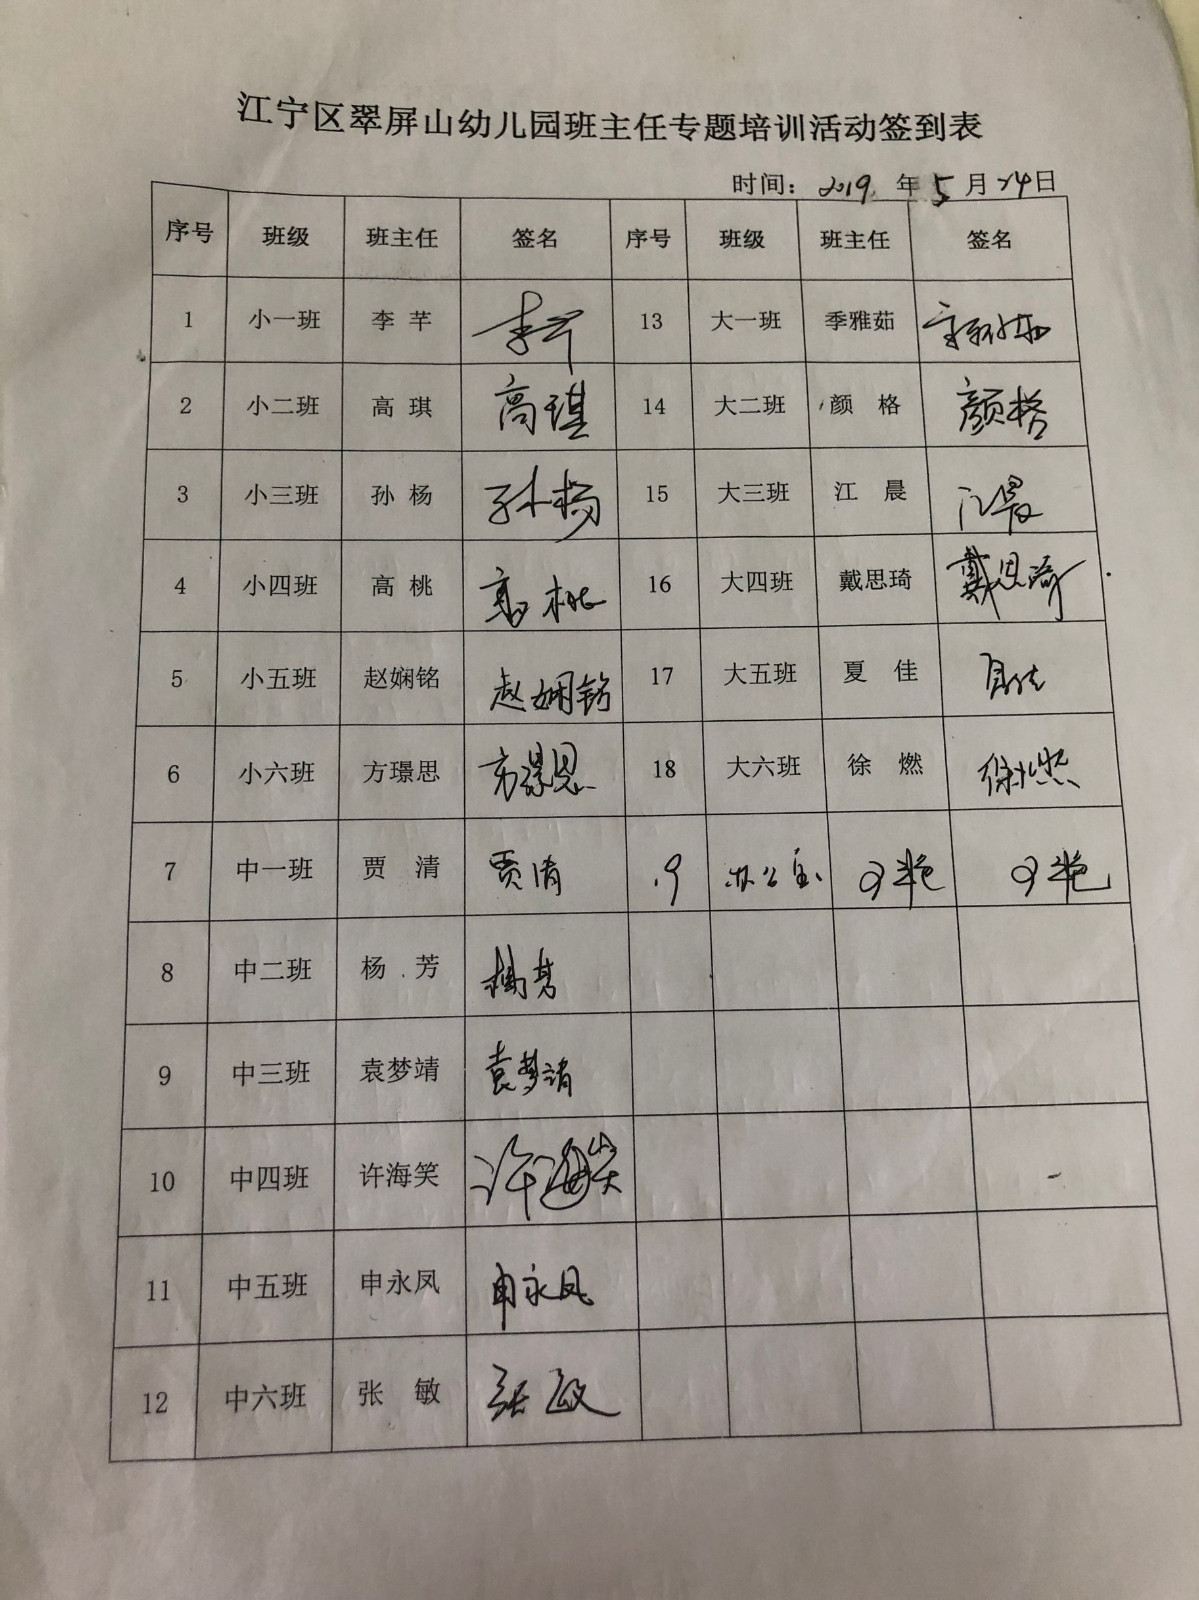 江宁区翠屏山幼儿园班主任专题培训活动签到表
时间：2019年5月24日
序号 班级 班主任 签名 序号 班级 班主任 签名
1 小一班 李芊 李芊 13 大一班 季雅茹 季雅茹
2 小二班 高琪 高琪 14 大二班 颜格 颜格
3 小三班 孙杨 孙杨 15 大三班 江晨 江晨
4 小四班 高桃 高桃 16 大四班 戴思琦 戴思琦
5 小五班 赵娴铭 赵娴铭 17 大五班 夏佳 夏佳
6 小六班 方璟思 方璟思 18 大六班 徐燃 徐燃
7 中一班 贾清 贾清 19 办公室
8 中二班 杨芳 杨芳
9 中三班 袁梦靖 袁梦靖
10 中四班 许海笑 许海笑
11 中五班 申永凤 申永凤
12 中六班 张敏 张敏